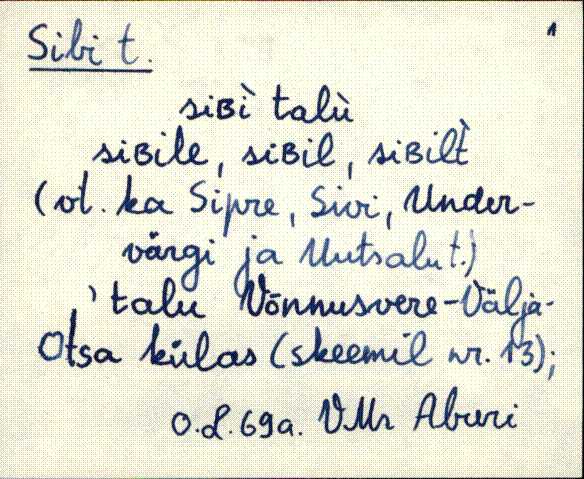 Sibi t.
1
siʙì talù
siʙile, siʙil, siʙilt̀
(vt. ka Sipre, Sivi, Under-
värgi ja Uutsalu t.)
' talu Võnnusvere-Välja-
Otsa külas (skeemil nr. 13);
VMr Aburi